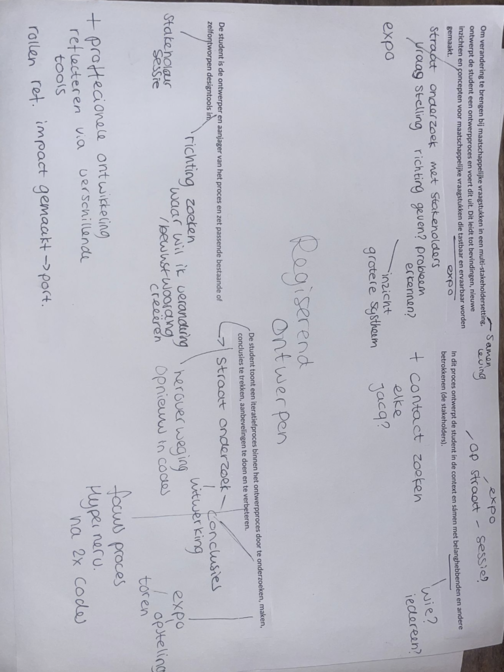 Om verandering te brengen bij maatschappelijke vraagstukken in een multi-stakeholdersetting,
ontwerpt de student een ontwerpproces en voert dit uit. Dit leidt tot bevindingen, nieuwe
inzichten en concepten voor maatschappelijke vraagstukken die tastbaar en ervaarbaar worden
gemaakt.
expo
straat onderzoek met stakeholders
vraag stelling richting geven? probleem
erkennen?
expo
inzicht
grotere systheem
samen
In dit proces ontwerpt de student in de context en samen met belanghebbenden en andere
betrokkenen (de stakeholders).
expo
op straat - sessie?
+ contact zoeken
elke
jacq?
wie?
iedereen?
Regiserend
ontwerpen
De student is de ontwerper en aanjager van het proces en zet passende bestaande of
zelfontworpen designtools in.
stakeholder
sessie
richting zoeken
waar wil ik verandering
/bewustwording
creëeren
+ proffecionele ontwikkeling
reflecteren via verschillende
tools
rollen ref. impact gemaakt → port.
De student toont een iteratief proces binnen het ontwerpproces door te onderzoeken, maken,
conclusies te trekken, aanbevelingen te doen en te verbeteren.
→ straat onderzoek - conclusies
uitwerking
heroverweging
opnieuw in codes
expo
/ opstelling
toren
focus proces
Hyper nerv.
na 2x codes